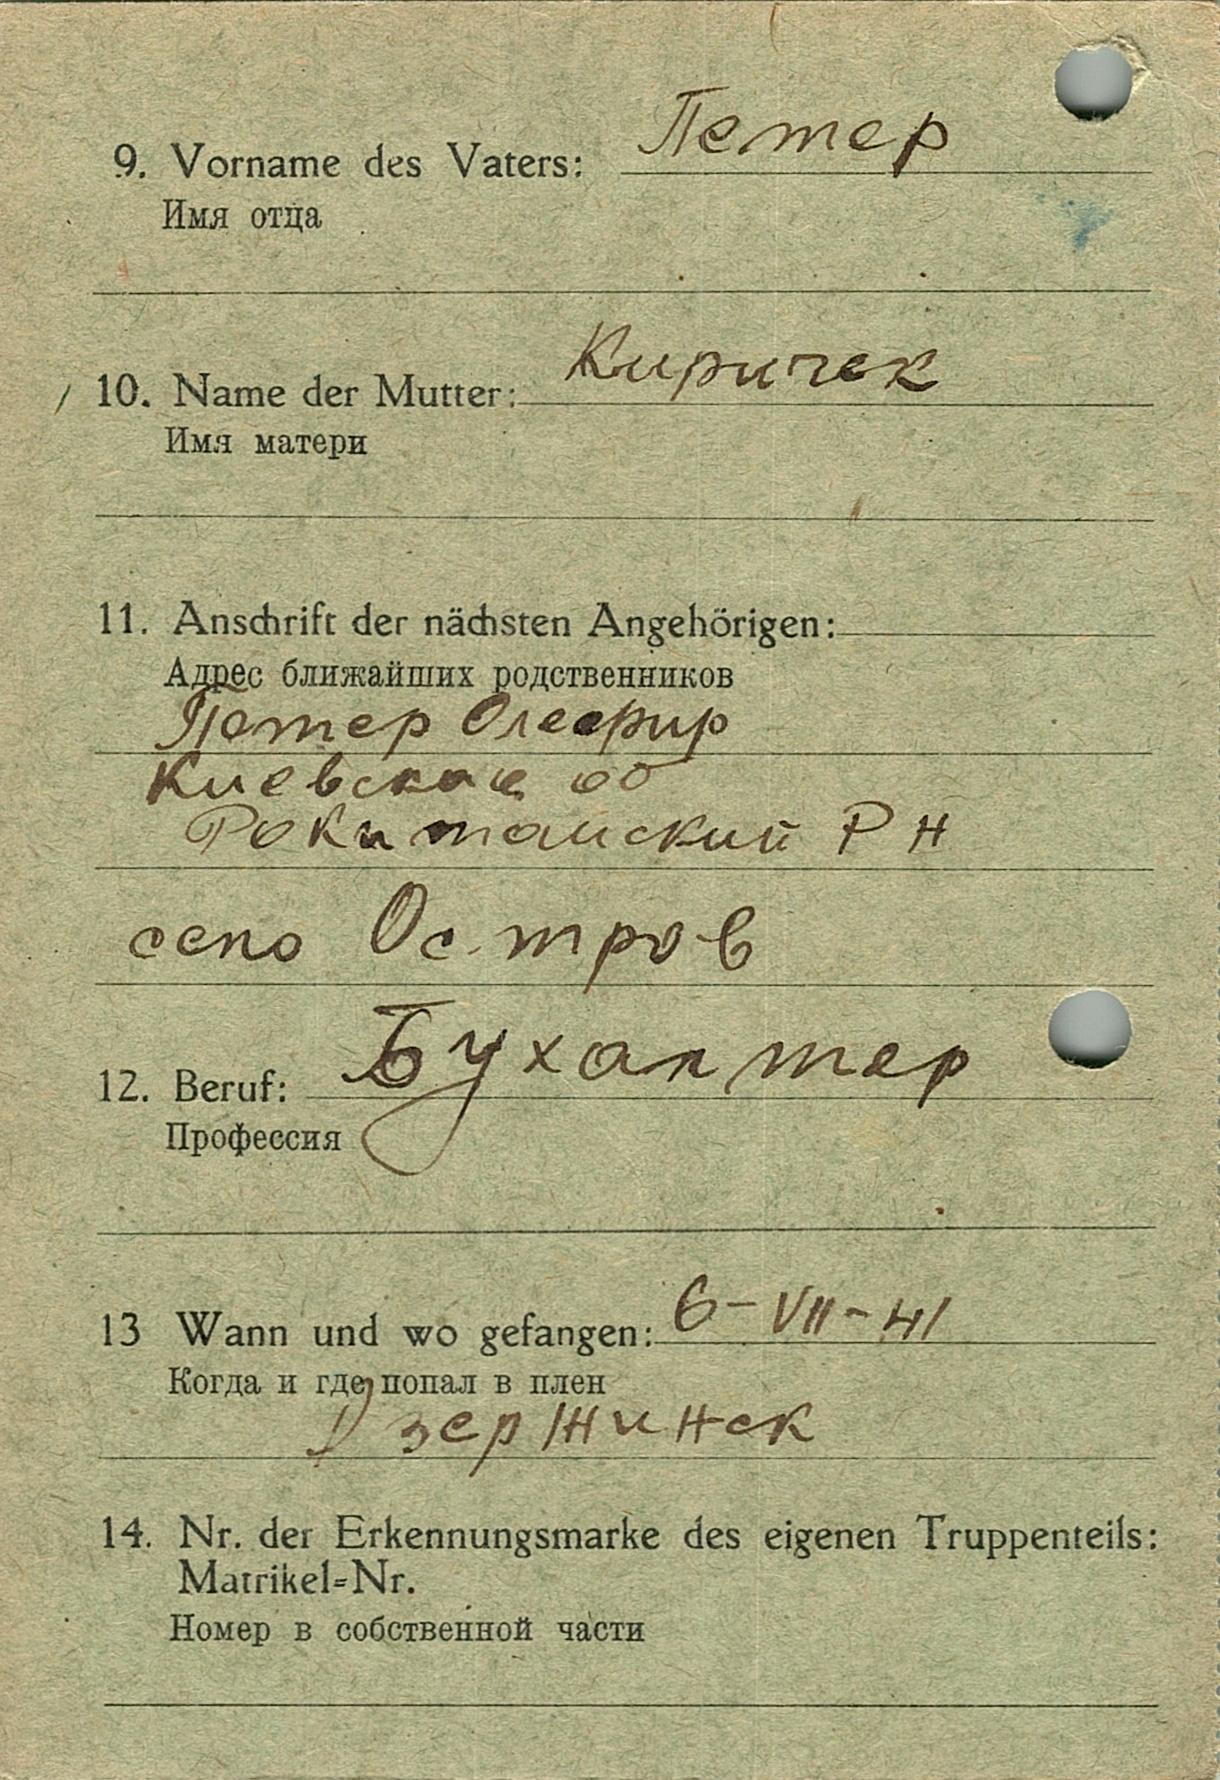 9. Vorname des Vaters: Петер
Имя отца
10. Name der Mutter: Киричек
Имя матери
11. Anschrift der nächsten Angehörigen:
Адрес ближайших родственников
Петер Олефир
Киевская об
Рокитанский Р Н
село Остров
12. Beruf: Бухалтер
Профессия
13 Wann und wo gefangen: 6-VII-41
Когда и где попал в плен
Дзержинск
14. Nr. der Erkennungsmarke des eigenen Truppenteils:
Matrikel=Nr.
Номер в собственной части